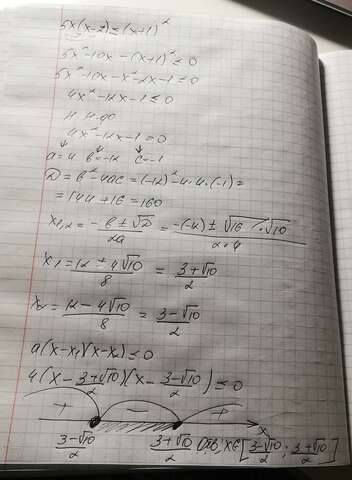 5x(x-2)≤(x+1)²
5x²-10x-(x+1)²≤0
5x²-10x-x²-2x-1≤0
4x²-12x-1≤0
Н.Н.ФО
4x²-12x-1=0
a=4 b=-12 c=-1
D=b²-4ac=(-12)²-4·4·(-1)=
=144+16=160
x₁,₂=(-b±√D)/2a=(-(-12)±√16·√10)/2·4
x₁=(12+4√10)/8=(3+√10)/2
x₂=(12-4√10)/8=(3-√10)/2
a(x-x₁)(x-x₂)≤0
4(x-(3+√10)/2)(x-(3-√10)/2)≤0
+ - + x
(3-√10)/2 (3+√10)/2 Отв: x∈[(3-√10)/2; (3+√10)/2]